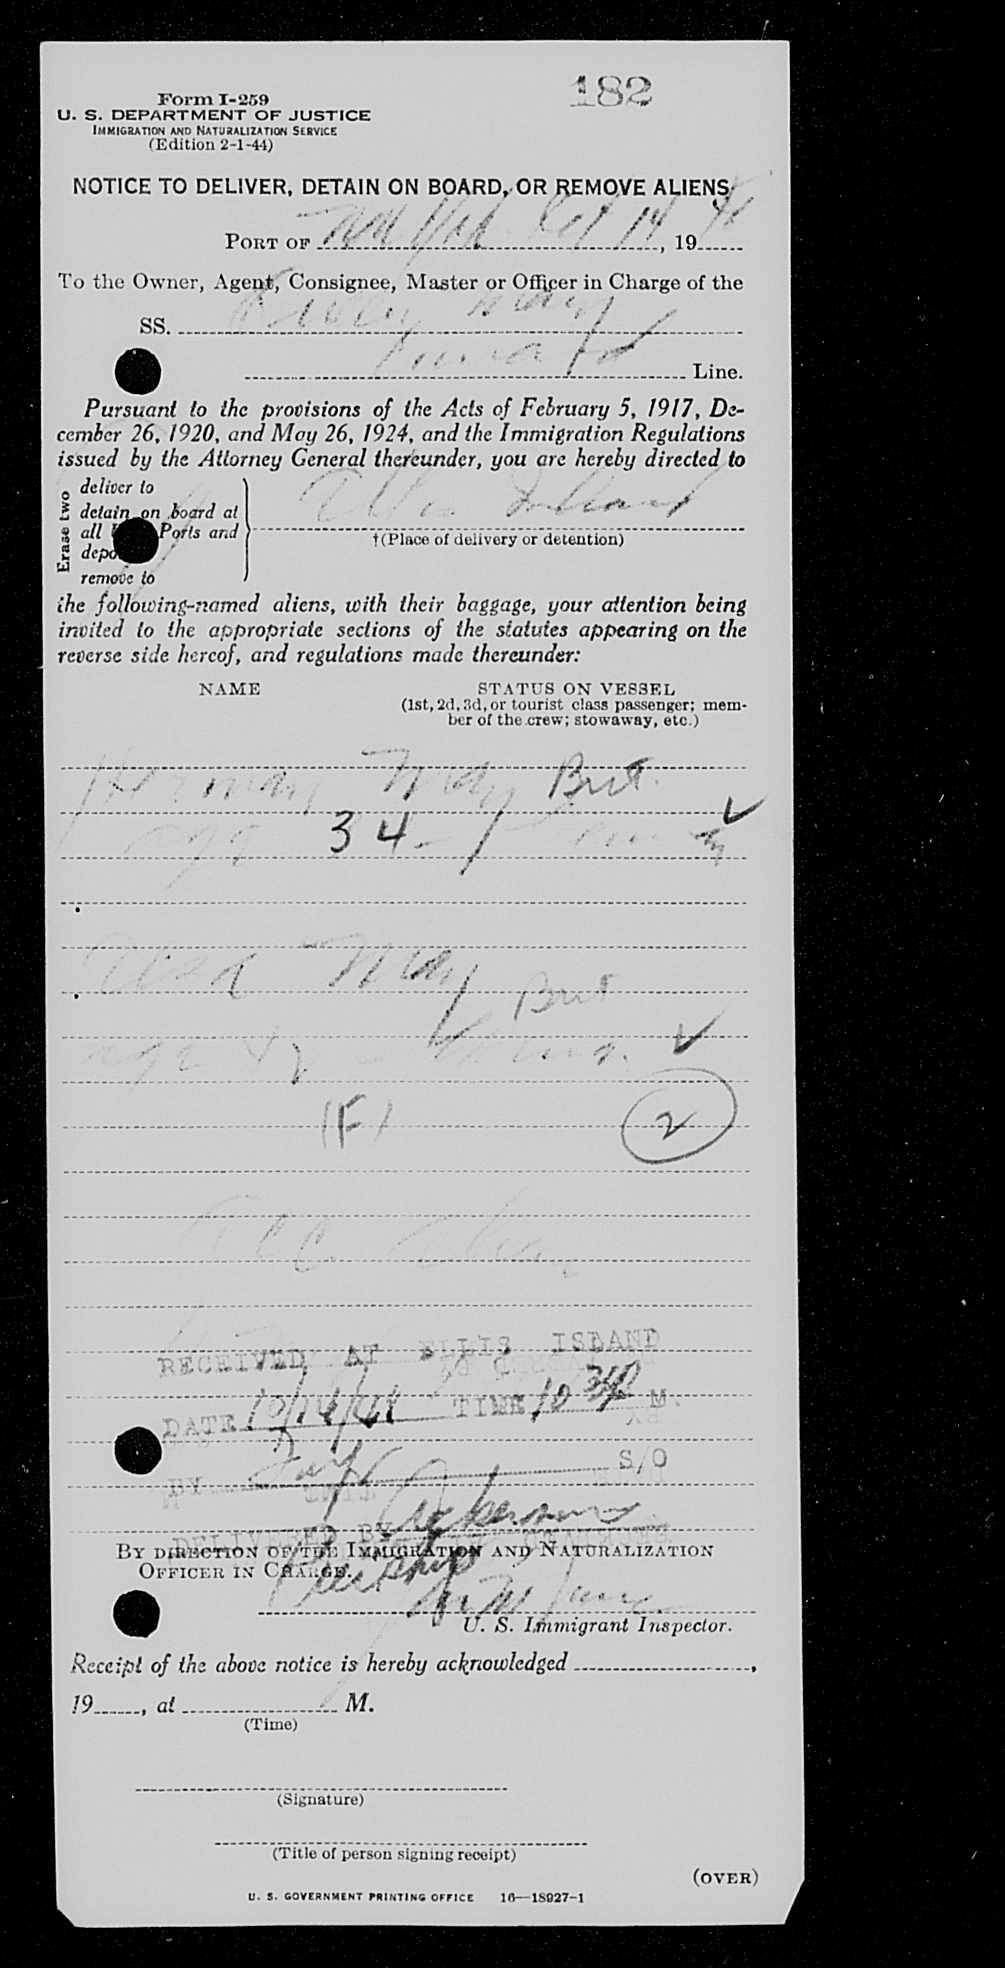 182
Form I-259
U. S. DEPARTMENT OF JUSTICE
IMMIGRATION AND NATURALIZATION SERVICE
(Edition 2-1-44)
NOTICE TO DELIVER, DETAIN ON BOARD, OR REMOVE ALIENS
PORT OF New York Oct 14, 19
To the Owner, Agent, Consignee, Master or Officer in Charge of the
SS.
Cunard Line.
Pursuant to the provisions of the Acts of February 5, 1917, De-
cember 26, 1920, and May 26, 1924, and the Immigration Regulations
issued by the Attorney General thereunder, you are hereby directed to
Erase two
deliver to
detain on board at
all Ports and
remove to
Ellis Island
†(Place of delivery or detention)
the following-named aliens, with their baggage, your attention being
invited to the appropriate sections of the statutes appearing on the
reverse side hereof, and regulations made thereunder:
NAME STATUS ON VESSEL
(1st, 2d, 3d, or tourist class passenger; mem-
ber of the crew; stowaway, etc.)
Herman May Brit.
age 34 -
May
Brit
age
(F) 2
RECEIVED AT ELLIS ISLAND
DATE TIME 10 30 P M.
BY S/O
DELIVERED BY
BY DIRECTION OF THE IMMIGRATION AND NATURALIZATION
OFFICER IN CHARGE.
U. S. Immigrant Inspector.
Receipt of the above notice is hereby acknowledged ,
19 , at M.
(Time)
(Signature)
(Title of person signing receipt)
(OVER)
U. S. GOVERNMENT PRINTING OFFICE 16—18927-1